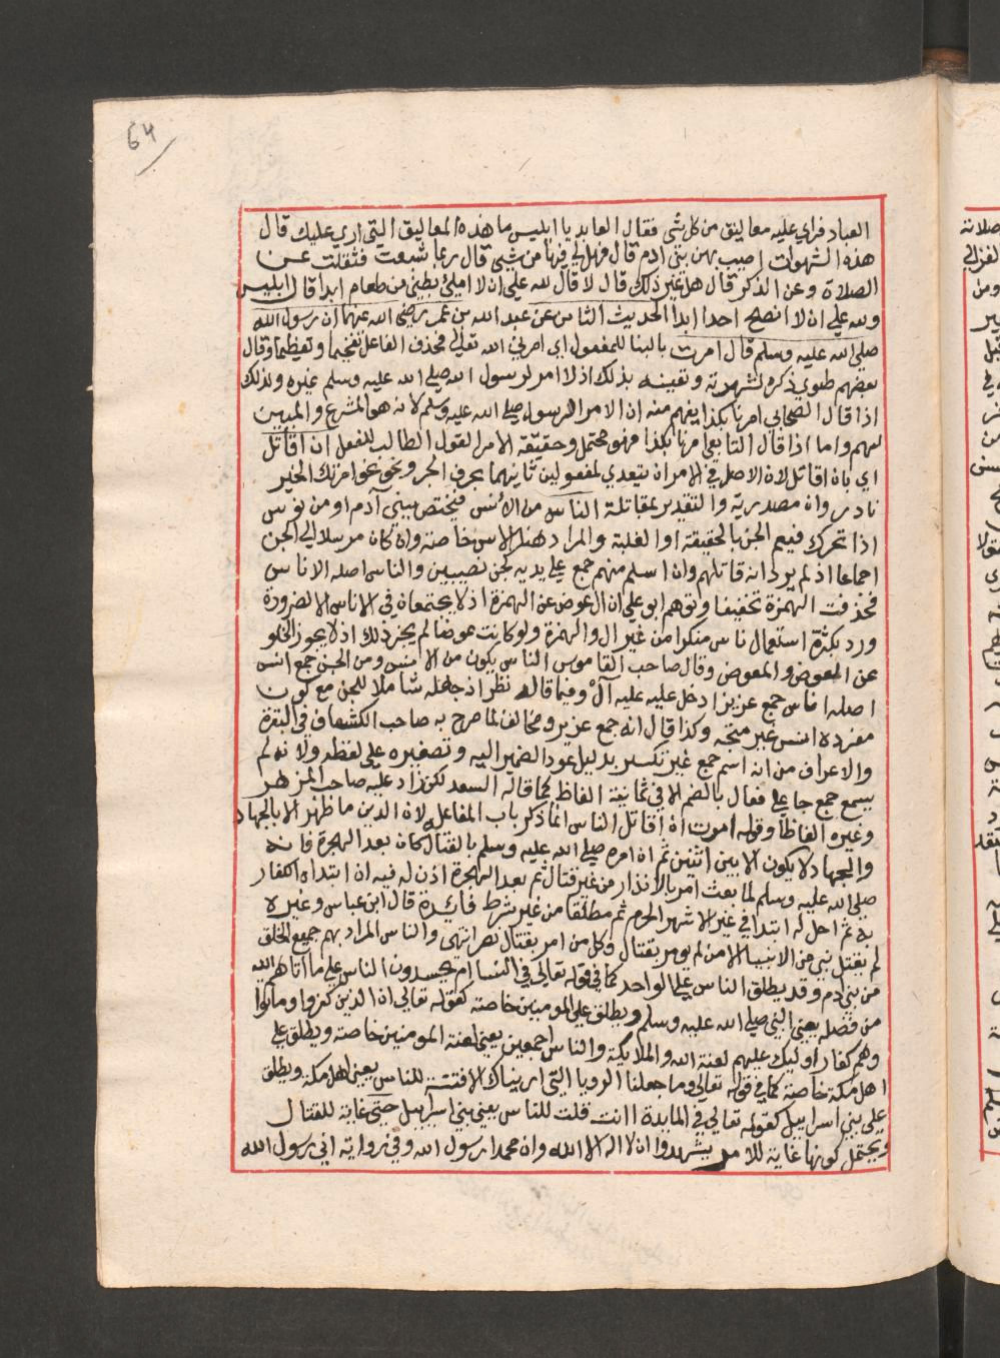 64
العباد فراي عليه معاليق من كل شي فقال العابد يا ابليس ما هذه المعاليق التي اري عليك قال
هذه الشهوات اصيب بهن بني ادم قال فهل لي فيها من شي قال ربما شبعت فثقلت عن
الصلاة وعن الذكر قال هل غير ذلك قال لا قال لله علي ان لا املئ بطني من طعام ابدا قال ابليس
ولله علي ان لا انصح احدا ابدا الحديث الثامن عن عبد الله بن عمر رضي الله عنهما ان رسول الله
صلى الله عليه وسلم قال امرت بالبنا للمفعول اي امرني الله تعالى فحذف الفاعل تفخيما وتعظيما وقال
بعضهم طوي ذكره لشهرته وتعينه بذلك اذ لا امر لرسول الله صلى الله عليه وسلم غيره ولذلك
اذا قال الصحابي امرنا بكذا يفهم منه ان الامر الرسول صلى الله عليه وسلم لانه هو المشرع والمبين
لهم واما اذا قال التابعي امرنا بكذا فهو محتمل وحقيقة الامر القول الطالب للفعل ان اقاتل
اي بان اقاتل لان الاصل في الامر ان يتعدي لمفعولين ثانيهما بحرف الجر ونحو امرتك الخير
نادر وان مصدرية والتقدير بمقاتلة الناس من الانس فيختص ببني آدم او من نوس
اذا تحرك فيعم الجن بالحقيقة او الغلبة والمراد هنا الانس خاصة وان كان مرسلا الي الجن
اجماعا اذ لم يرد انه قاتلهم وان اسلم منهم جمع علي يديه كجن نصيبين والناس اصله الاناس
فحذفت الهمزة تخفيفا وتوهم ابو علي ان ال عوض عن الهمزة اذ لا يجتمعان في الاناس الا لضرورة
ورد بكثرة استعمال ناس منكرا من غير ال والهمزة ولو كانت عوضا لم يجز ذلك اذ لا يجوز الخلو
عن العوض والمعوض وقال صاحب القاموس الناس يكون من الانس ومن الجن جمع انس
اصله اناس جمع عزيز ادخل عليه عليه آل وفيما قاله نظر اذ جعله شاملا للجن مع كون
مفرده انس غير متجه وكذا قال انه جمع عزيز ومخالف لما صرح به صاحب الكشاف في البقرة
والاعراف من انه اسم جمع غير تكسير بدليل عود الضمير اليه وتصغيره علي لفظه ولانه لم
يسمع جمع جا علي فعال بالضم الا في ثمانية الفاظ كما قاله السعد لكن زاد عليه صاحب المزهر
وغيره الفاظا وقوله امرت ان اقاتل الناس انما ذكر باب المفاعله لان الدين ما ظهر الا بالجهاد
والجهاد لا يكون الا بين اثنين ثم ان امره صلى الله عليه وسلم بالقتال كان بعد الهجرة فانه
صلى الله عليه وسلم لما بعث امر بالانذار من غير قتال ثم بعد الهجرة اذن له فيه ان ابتداه الكفار
به ثم احل له ابتدا في غير الاشهر الحرم ثم مطلقا من غير شرط فائدة قال ابن عباس وغيره
لم يقتل نبي من الانبيا الا من لم يومر بقتال وكل من امر بقتال نصر انتهى والناس المراد بهم جميع الخلق
من بني ادم وقد يطلق الناس علي الواحد كما في قوله تعالي في النسا ام يحسدون الناس علي ما اتاهم الله
من فضله يعني النبي صلى الله عليه وسلم ويطلق علي المومنين خاصة كقوله تعالي ان الذين كفروا وماتوا
وهم كفار اوليك عليهم لعنة الله والملائكة والناس اجمعين يعني لعنة المومنين خاصة ويطلق علي
اهل مكة خاصة كما في قوله تعالي وما جعلنا الرويا التي اريناك الا فتنة للناس يعني اهل مكة ويطلق
علي بني اسراييل كقوله تعالي في المايدة اانت قلت للناس يعني بني اسراييل حتى غاية للقتال
ويحتمل كونها غاية للامر يشهدوا ان لا اله الا الله وان محمدا رسول الله وفي رواية اني رسول الله